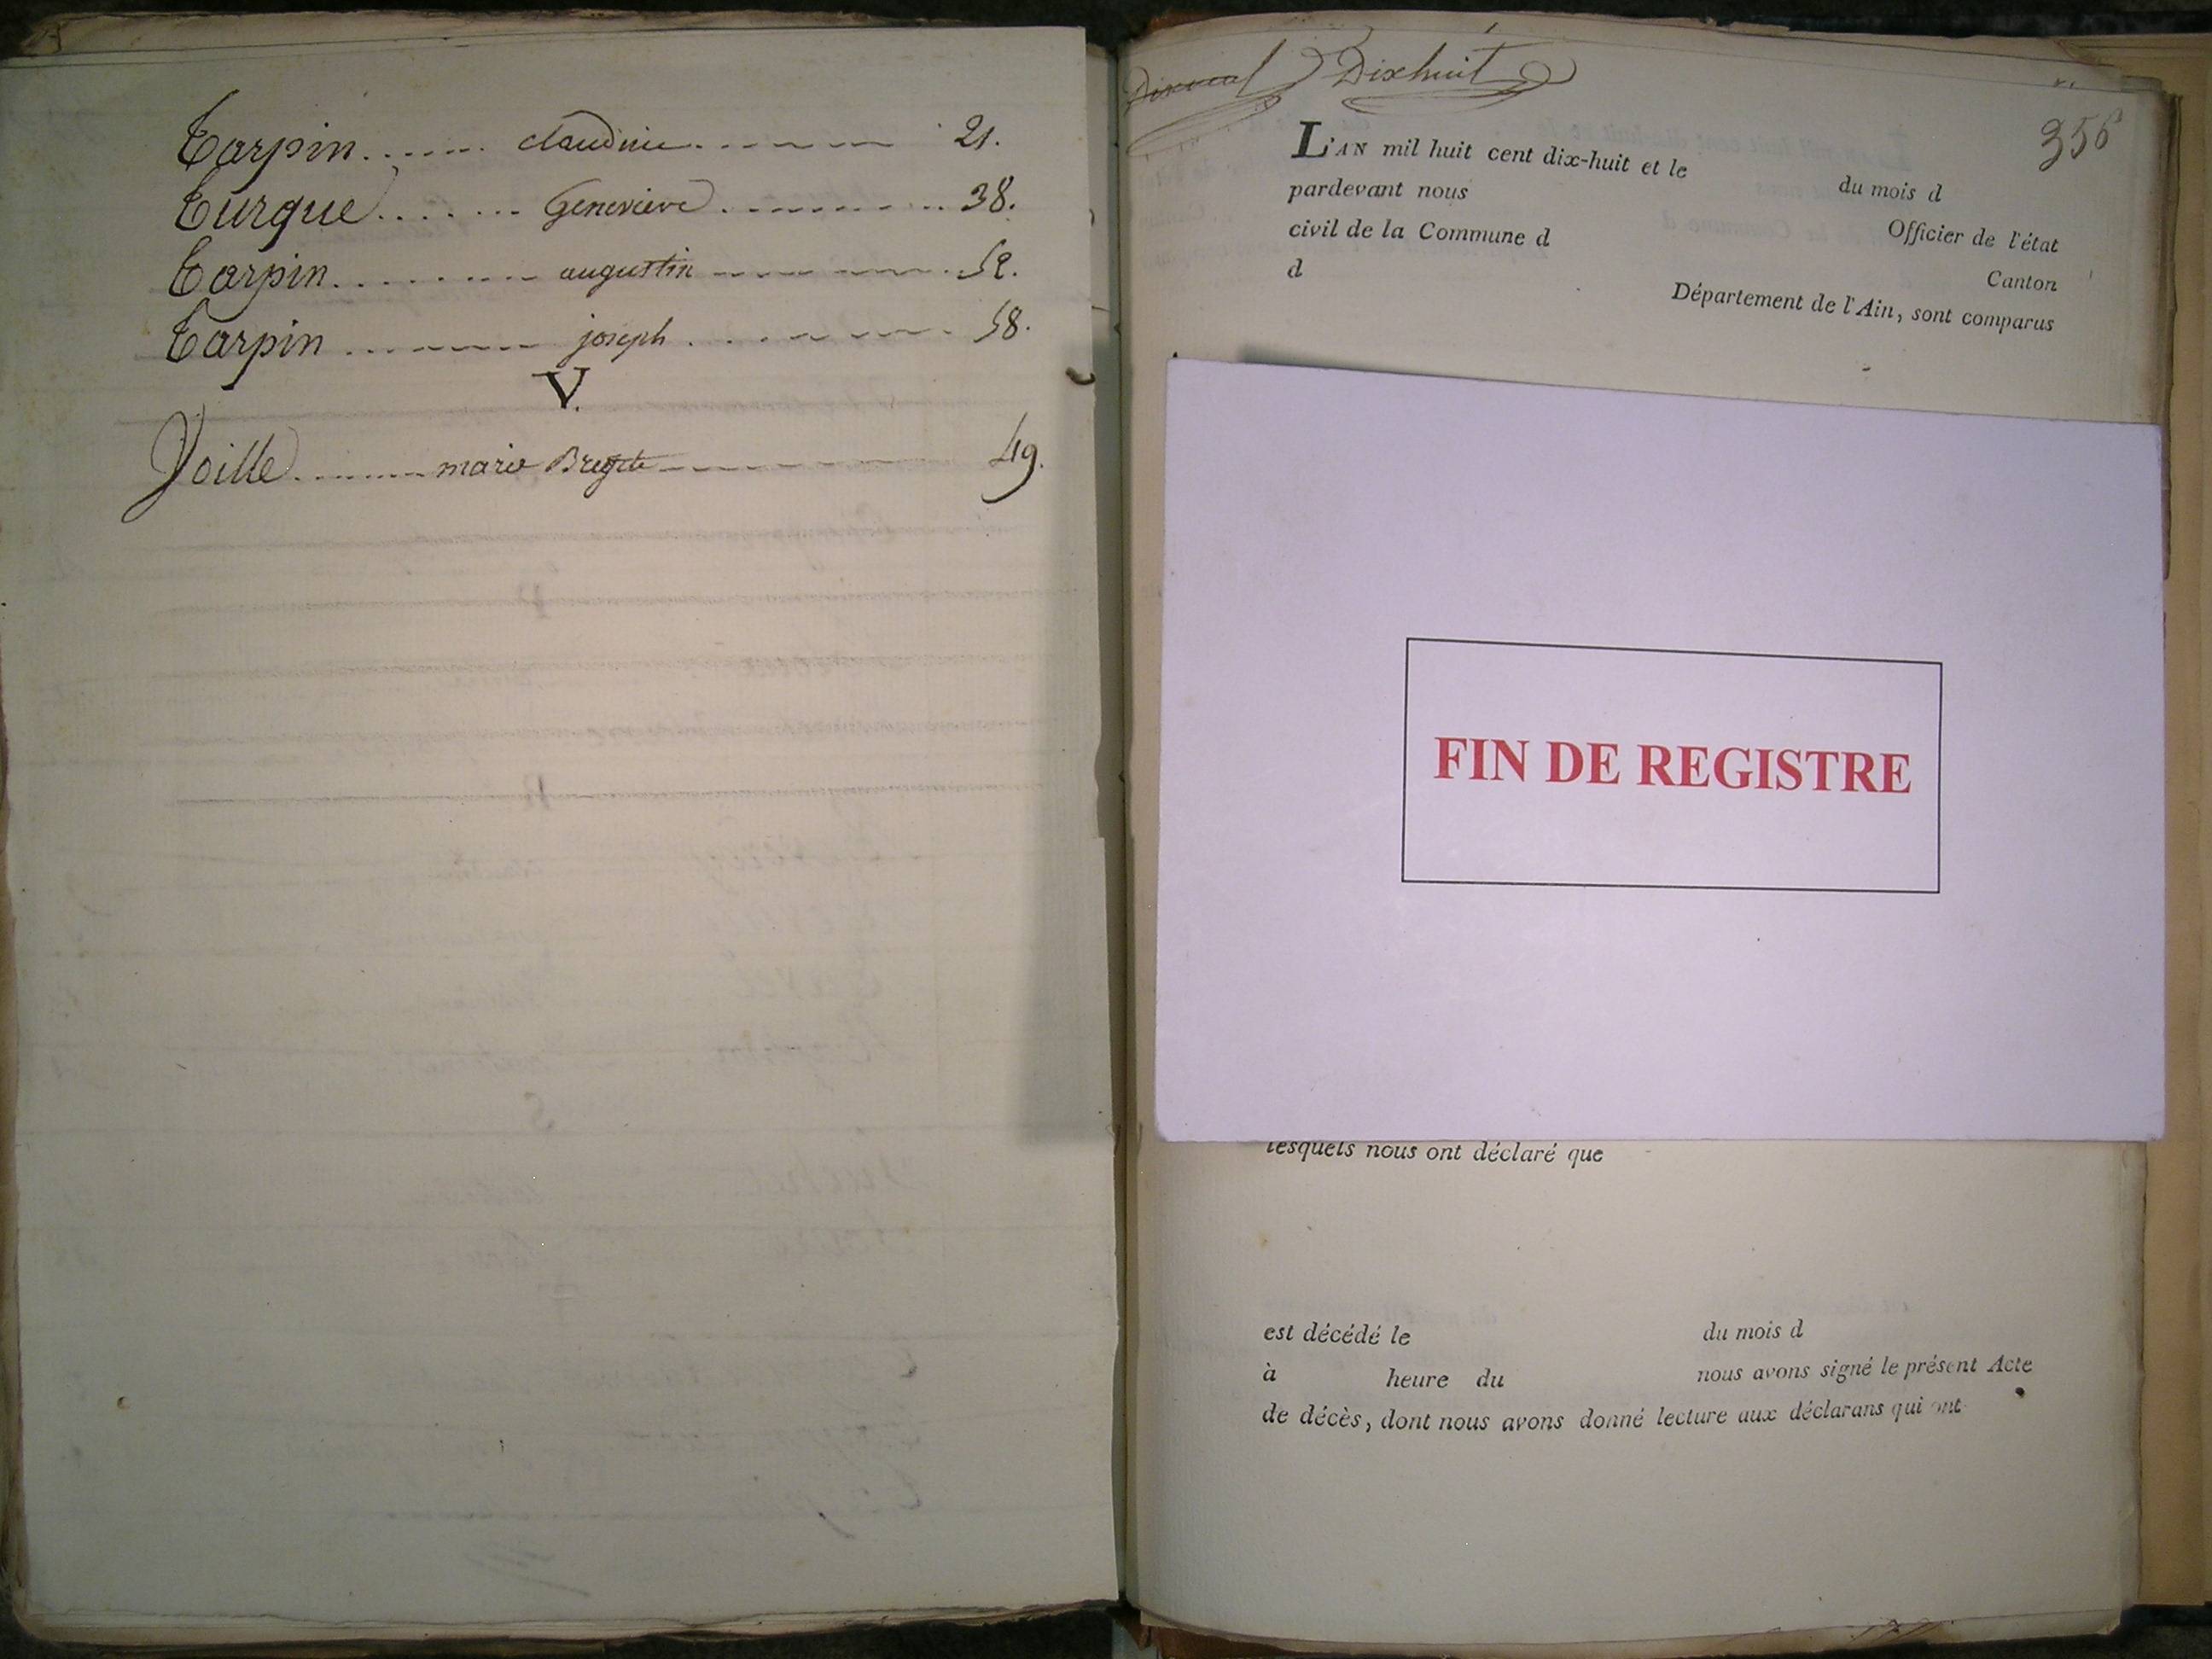 Tarpin claudine 21.
Turque Genevieve 38.
Tarpin augustin 52.
Tarpin joseph 58.
V.
Voille marie Brigite 49.
Dixhuit
356
L'AN mil huit cent dix-huit et le du mois d
pardevant nous Officier de l'état
civil de la Commune d Canton
d Département de l'Ain, sont comparus
FIN DE REGISTRE
lesquels nous ont déclaré que
est décédé le du mois d
à heure du nous avons signé le présent Acte
de décès, dont nous avons donné lecture aux déclarans qui ont